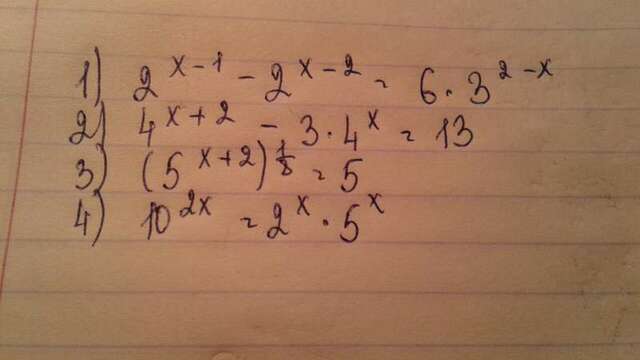 1) 2^{x-1} - 2^{x-2} = 6 · 3^{2-x}
2) 4^{x+2} - 3 · 4^x = 13
3) (5^{x+2})^{1/8} = 5
4) 10^{2x} = 2^x · 5^x